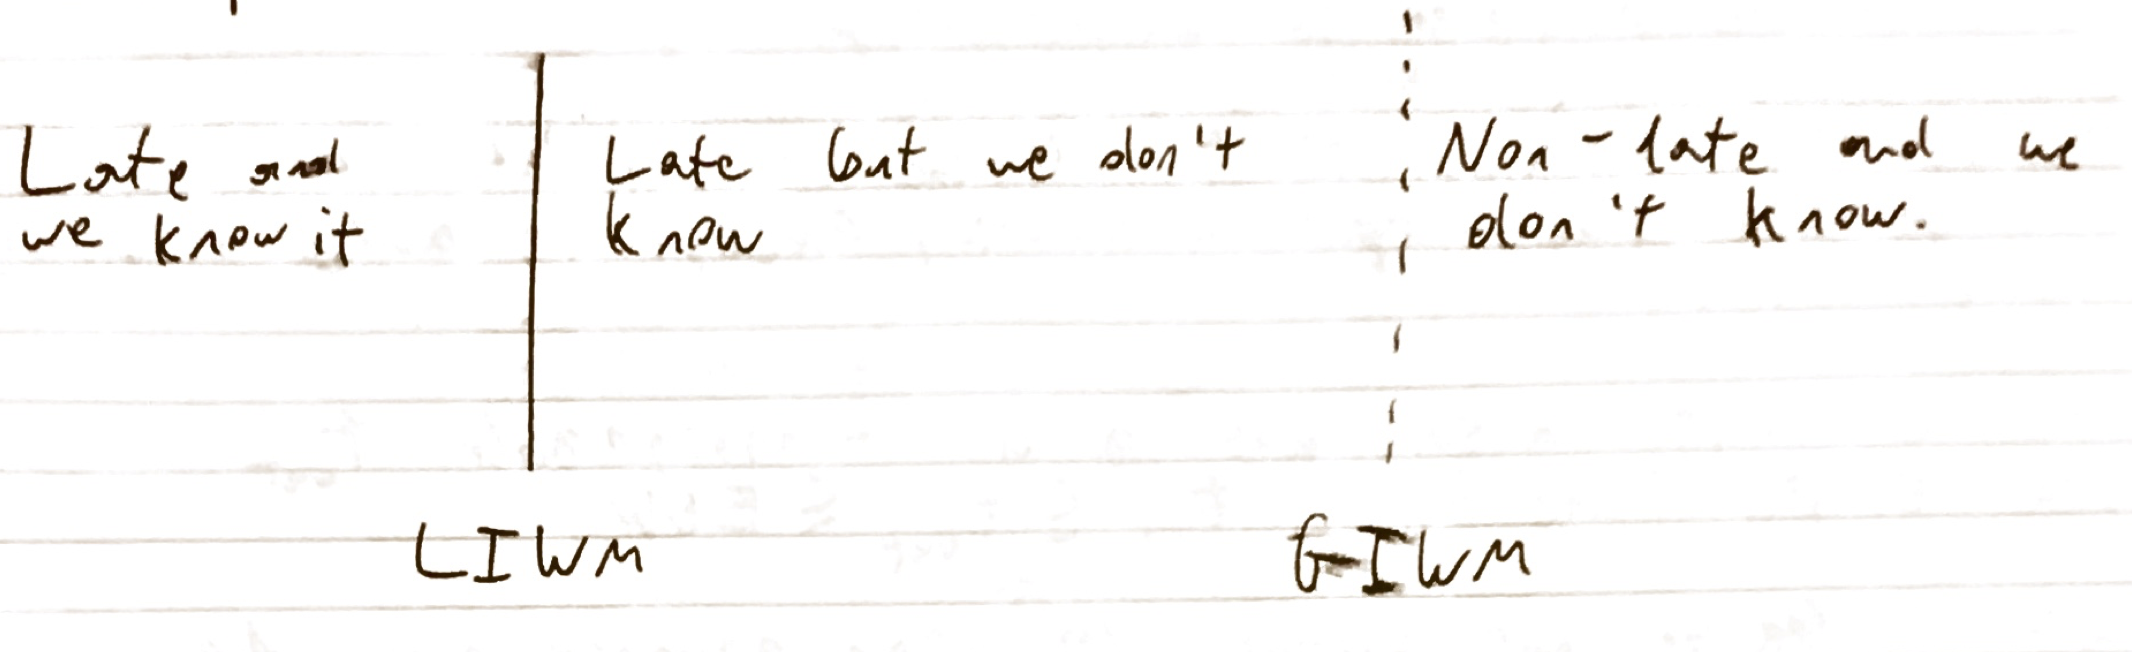 Late and
we know it
Late but we don't
know
Non-late and we
don't know.
LIWM
GIWM